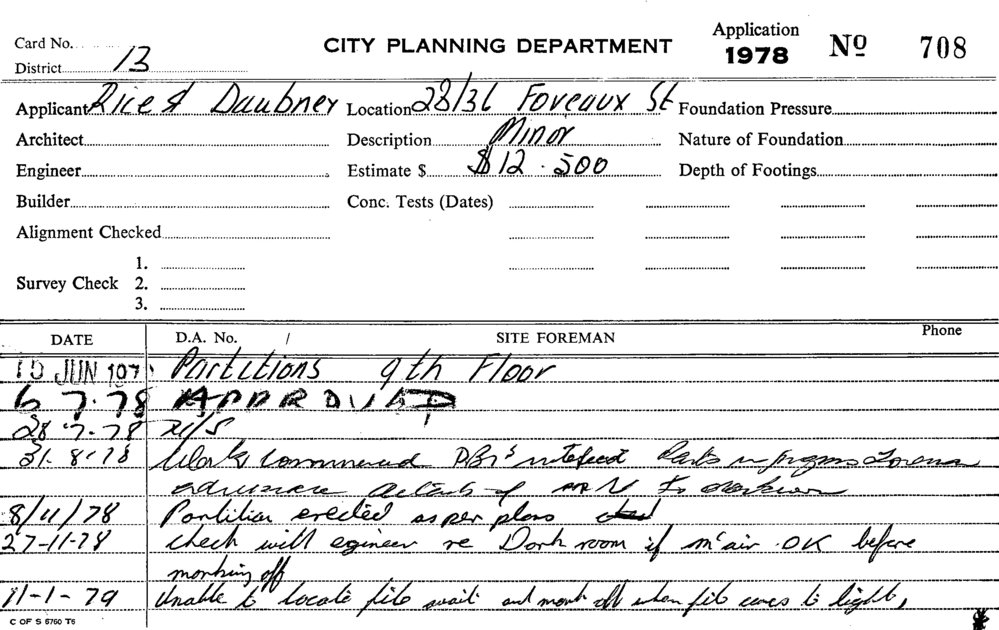 Card No.
District 13
CITY PLANNING DEPARTMENT
Application
1978
No 708
Applicant Rice & Daubney
Location 28/36 Foveaux St
Foundation Pressure
Architect
Description Minor
Nature of Foundation
Engineer
Estimate $ $12.500
Depth of Footings
Builder
Conc. Tests (Dates)
Alignment Checked
Survey Check
1.
2.
3.
DATE
D.A. No. /
SITE FOREMAN
Phone
JUN 197 Partitions 9th Floor
6 7.78 APPROVED
28.7.78
31.8.78 Work commenced
details of to
8/11/78 Partition erected as per plans
27-11-78 check will egineer re Dark room if m'air. OK before
marking off
11-1-79 Unable to locate file await and mark off when file comes to light,
C OF S 5760 T6